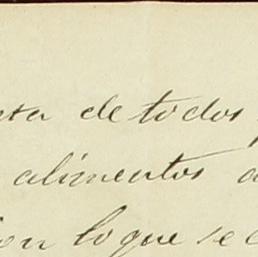 de todos
alimentos
lo que se